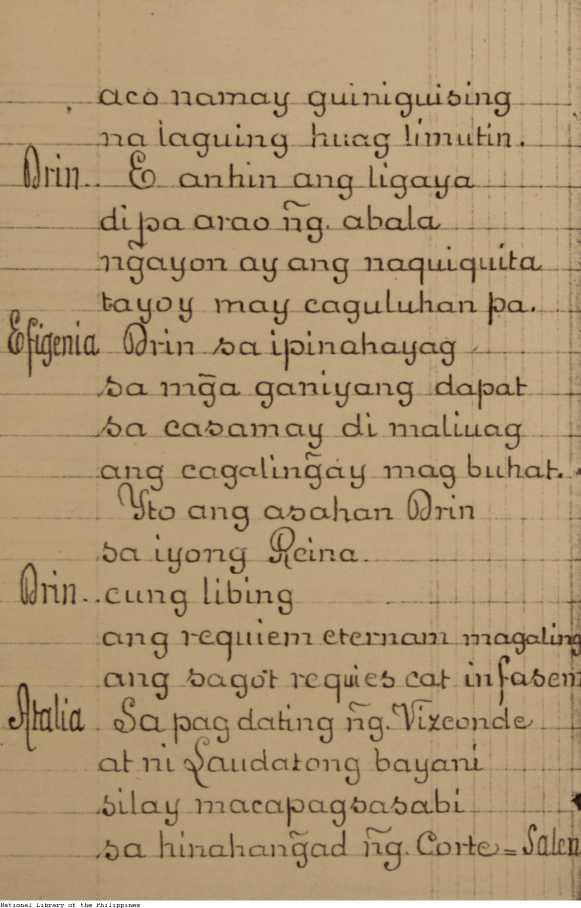 aco namay guiniguising
na laguing huag limutin.
Orin.. E anhin ang ligaya
di pa arao ñg. abala
ng̃ayon ay ang naquiquita
tayoy may caguluhan pa.
Efigenia Orin sa ipinahayag
sa mg̃a ganiyang dapat
sa casamay di maliuag
ang cagaling̃ay mag buhat.
Yto ang asahan Orin
sa iyong Reina.
Orin.. cung libing
ang requiem eternam magaling
ang sagot requies cat in fasem
Atalia Sa pag dating ñg. Vizconde
at ni Laudatong bayani
silay macapagsasabi
sa hinahang̃ad ñg. Corte = Salen
National Library of the Philippines